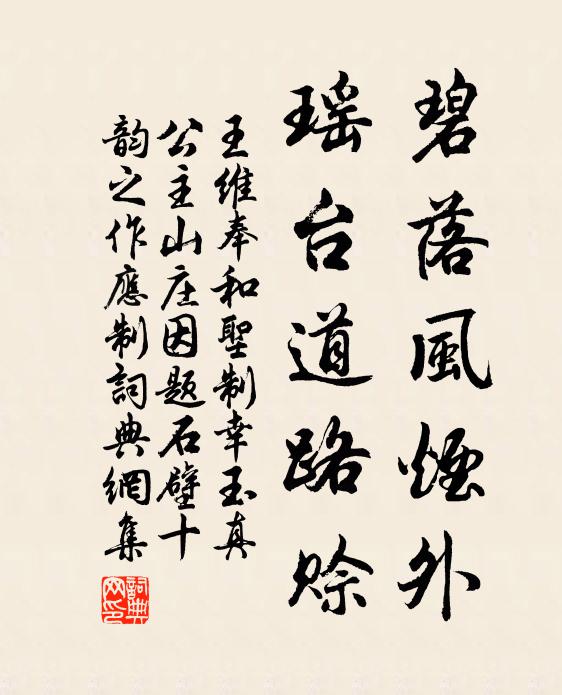 碧落風煙外
瑶台道路賒
王維奉和聖制幸玉真
公主山庄因題石壁十
韵之作應制詞典網集
詞典网印